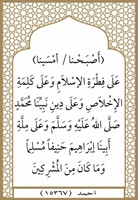 (أَصْبَحْنا / أَمْسَينا)
عَلَى فِطْرَةِ الإِسْلَامِ وَعَلَى كَلِمَةِ
الإِخْلَاصِ وَعَلَى دِينِ نَبِيِّنَا مُحَمَّدٍ
صَلَّى اللهُ عَلَيْهِ وَسَلَّمَ وَعَلَى مِلَّةِ
أَبِينَا إِبْرَاهِيمَ حَنِيفًا مُسْلِمًا
وَمَا كَانَ مِنَ الْمُشْرِكِينَ
احمد (١٥٣٦٧)